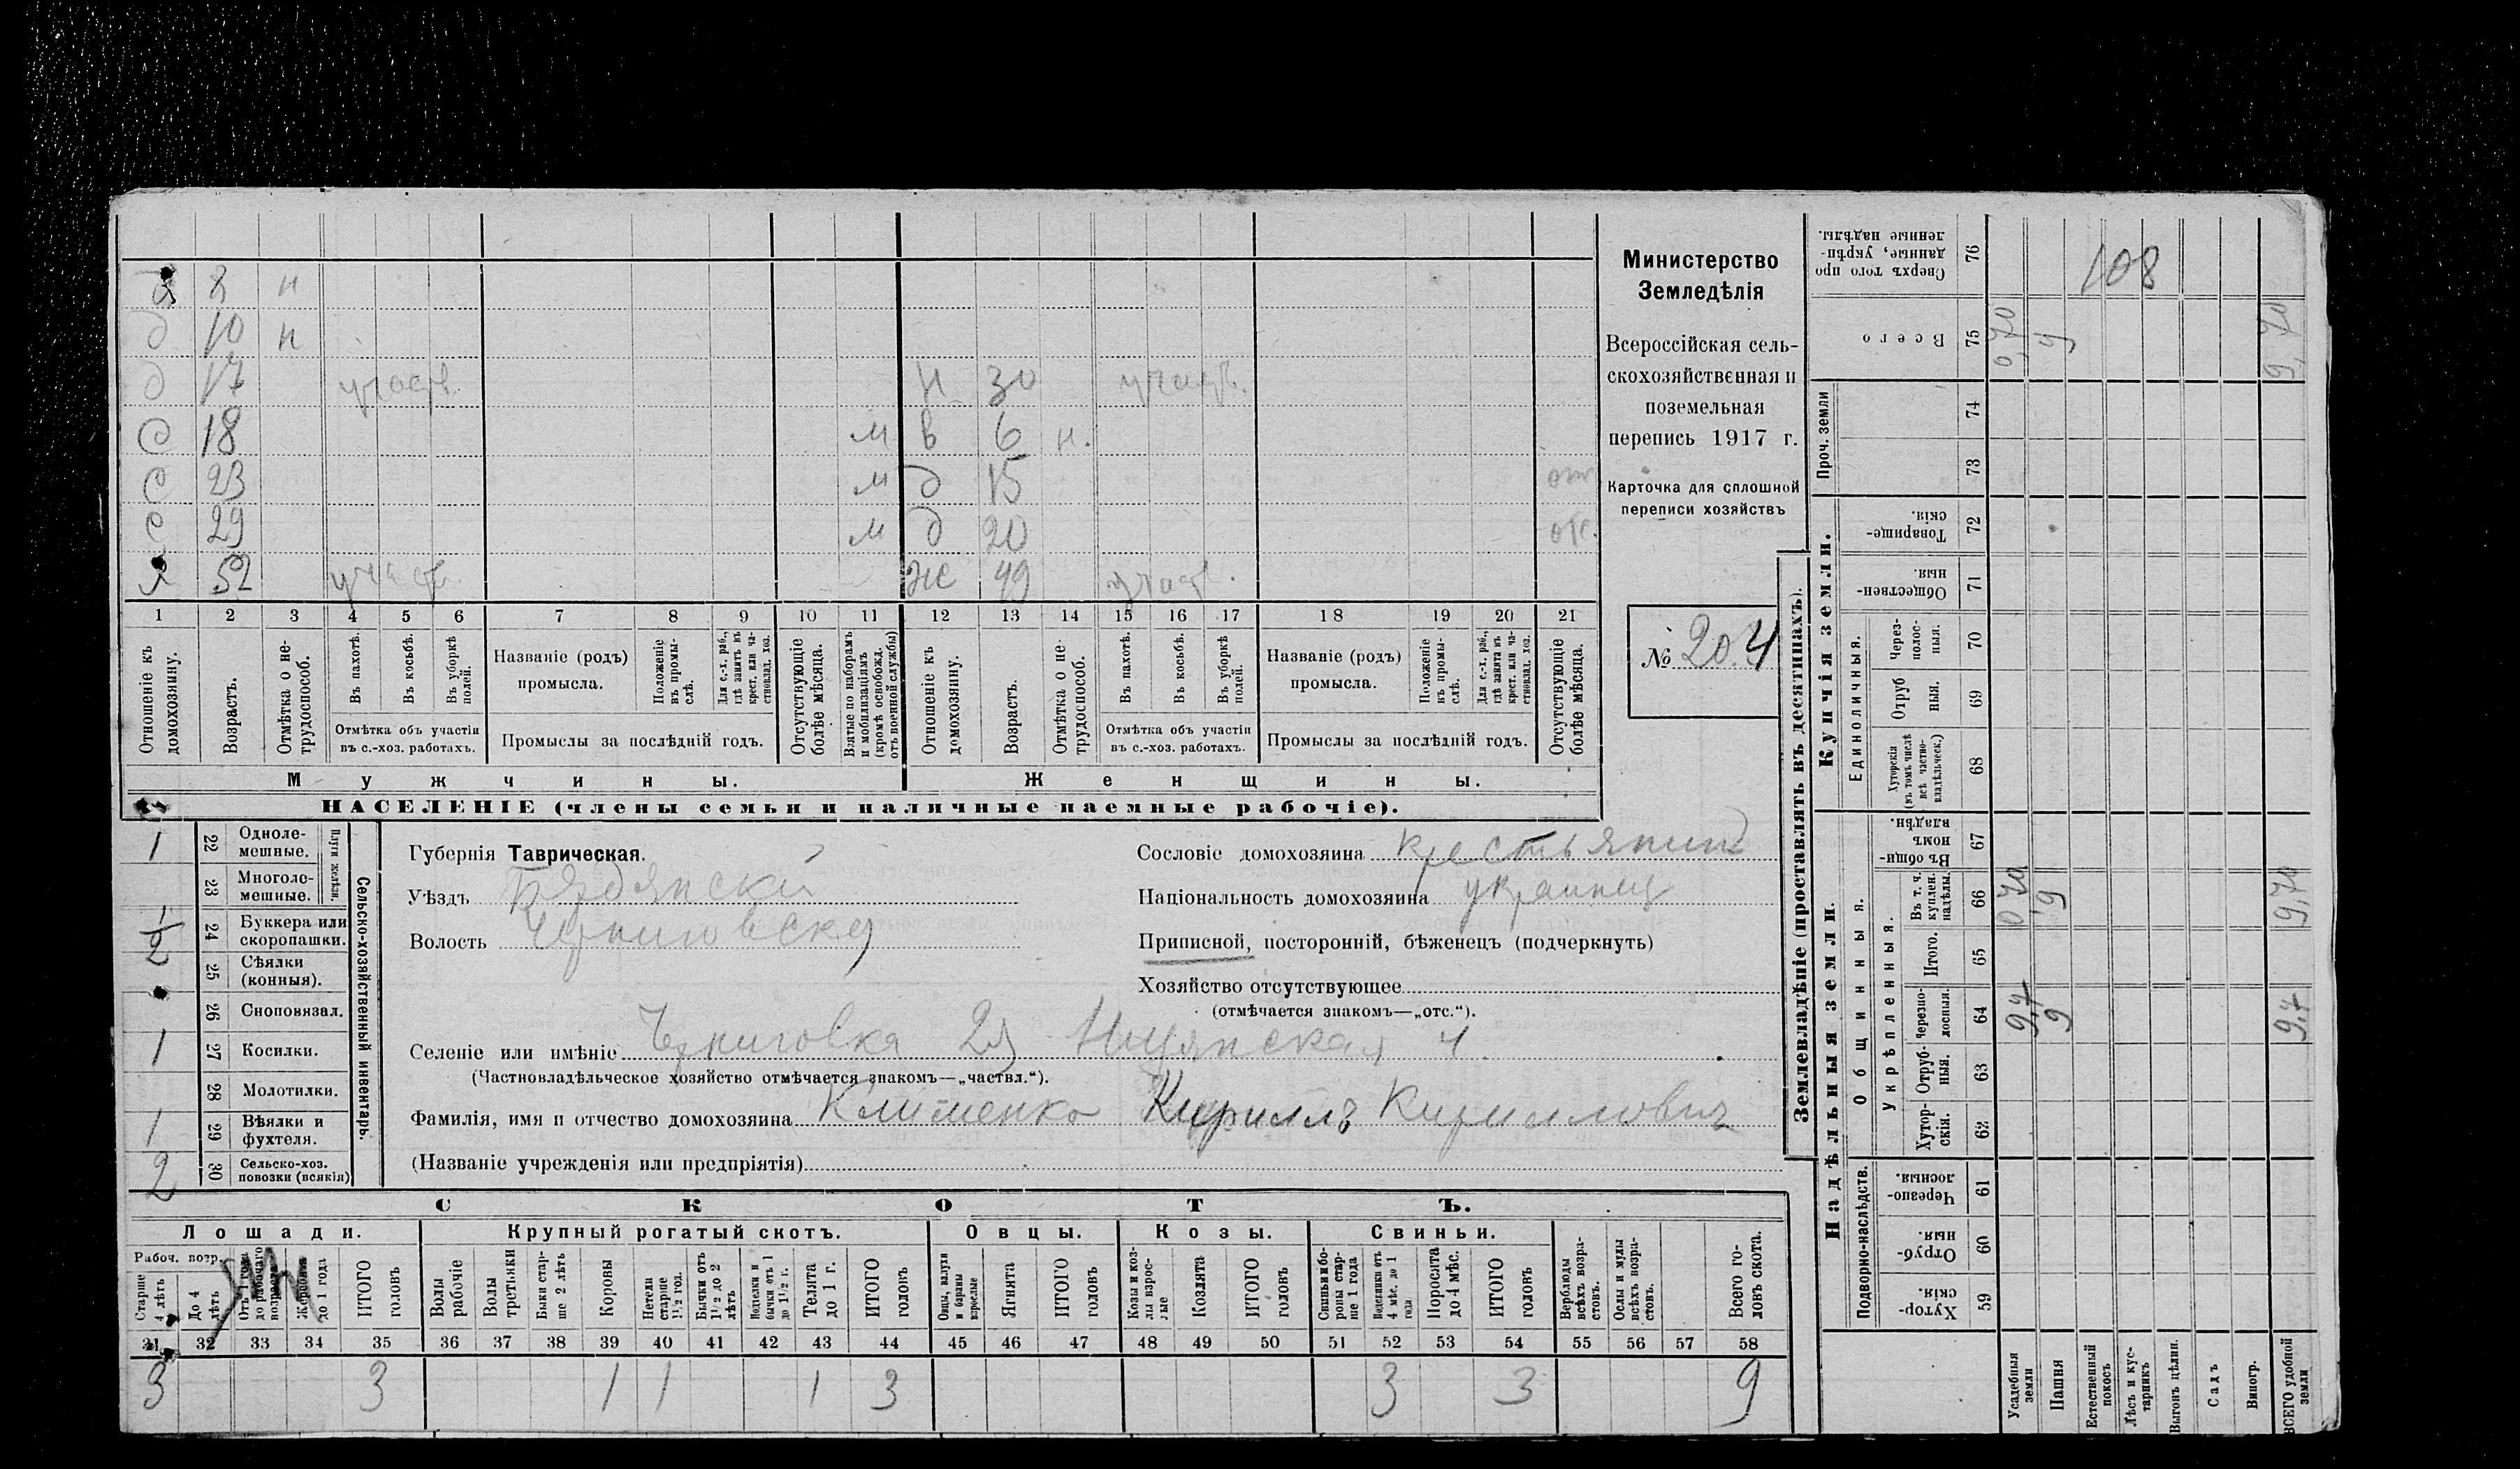 д 8 н
д 10 н
д 17 участв. н 30 участв.
с 18 м в 6 н.
с 23 м д 15 отс
с 29 м д 20 отс.
х 52 участв. же 49 участв.
1 2 3 4 5 6 7 8 9 10 11 12 13 14 15 16 17 18 19 20 21
Отношеніе къ домохозяину.
Возрастъ.
Отмѣтка о не-трудоспособ.
Въ пахотѣ.
Въ косьбѣ.
Въ уборкѣ полей.
Отмѣтка объ участіи въ с.-хоз. работахъ.
Названіе (родъ) промысла.
Положеніе въ промы-слѣ.
Для с.-х. раб., гдѣ занятъ въ крест. или ча-стновлад. хоз.
Промыслы за послѣдній годъ.
Отсутствующіе болѣе мѣсяца.
Взятые по наборамъ и мобилизаціямъ (кромѣ освобожд. отъ военной службы)
Отношеніе къ домохозяину.
Возрастъ.
Отмѣтка о не-трудоспособ.
Въ пахотѣ.
Въ косьбѣ.
Въ уборкѣ полей.
Отмѣтка объ участіи въ с.-хоз. работахъ.
Названіе (родъ) промысла.
Положеніе въ промы-слѣ.
Для с.-х. раб., гдѣ занята въ крест. или ча-стновлад. хоз.
Промыслы за послѣдній годъ.
Отсутствующіе болѣе мѣсяца.
Мужчины. Женщины.
НАСЕЛЕНІЕ (члены семьи и наличные наемные рабочіе).
Министерство
Земледѣлія
Всероссійская сель-
скохозяйственная и
поземельная
перепись 1917 г.
Карточка для сплошной
переписи хозяйствъ
№ 204
1 22 Одноле-мешные.
23 Многоле-мешные.
Плуги желѣзн.
1/2 24 Буккера или скоропашки.
25 Сѣялки (конныя).
26 Сноповязал.
1 27 Косилки.
28 Молотилки.
1 29 Вѣялки и фухтеля.
2 30 Сельско-хоз. повозки (всякія)
Сельско-хозяйственный инвентарь.
Губернія Таврическая.
Уѣздъ Бердянскій
Волость Черниговская
Сословіе домохозяина крестьянин
Національность домохозяина украинец
Приписной, посторонній, бѣженецъ (подчеркнуть)
Хозяйство отсутствующее
(отмѣчается знакомъ—„отс.“).
Селеніе или имѣніе Черниговка 2я
(Частновладѣльческое хозяйство отмѣчается знакомъ—„частвл.“).
Фамилія, имя и отчество домохозяина Клименко Кириллъ Кириллович
(Названіе учрежденія или предпріятія)
СКОТЪ.
Лошади. Крупный рогатый скотъ. Овцы. Козы. Свиньи.
Рабоч. возр.
Старше 4 лѣтъ
До 4 лѣтъ
Отъ 1 года до рабочаго возраста
Жеребята до 1 года
ИТОГО головъ
Волы рабочіе
Волы третьяки
Быки стар-ше 2 лѣтъ
Коровы
Нетели старше 1½ год.
Бычки отъ 1½ до 2 лѣтъ
Подтелки и бычки отъ 1 до 1½ г.
Телята до 1 г.
ИТОГО головъ
Овцы, валухи и бараны взрослые
Ягнята
ИТОГО головъ
Козы и коз-лы взрос-лые
Козлята
ИТОГО головъ
Свиньи и бо-ровы стар-ше 1 года
Подсвинки отъ 4 мѣс. до 1 года
Поросята до 4 мѣс.
ИТОГО головъ
Верблюды всѣхъ возра-стовъ.
Ослы и мулы всѣхъ возра-стовъ.
Всего го-ловъ скота.
31 32 33 34 35 36 37 38 39 40 41 42 43 44 45 46 47 48 49 50 51 52 53 54 55 56 57 58
3 3 1 1 1 3 3 3 9
Землевладѣніе (проставлять въ десятинахъ).
Сверхъ того про-данные, укрѣп-ленные надѣлы. 76 108
Всего 75 0,70 9 9,70
Проч. земли 74
73
Купчія земли.
Товарище-скія. 72
Обществен-ныя. 71
Единоличныя.
Через-полос-ныя. 70
Отруб-ныя. 69
Хуторскія (въ томъ числѣ всѣ частно-владѣльческ.) 68
Надѣльныя земли.
Общинныя.
Въ общи-номъ владѣн. 67
Укрѣпленныя.
Въ т. ч. куплен. надѣлы. 66 0 70 9 9,70
Итого. 65
Черезпо-лосныя. 64 9,7 9 9,7
Отруб-ныя. 63
Хутор-скія. 62
Подворно-наслѣдств.
Черезпо-лосныя. 61
Отруб-ныя. 60
Хутор-скія. 59
Усадебныя земли
Пашня
Естественный покосъ
Лѣсъ и кус-тарникъ
Выгонъ цѣлин.
Садъ
Виногр.
ВСЕГО удобной земли